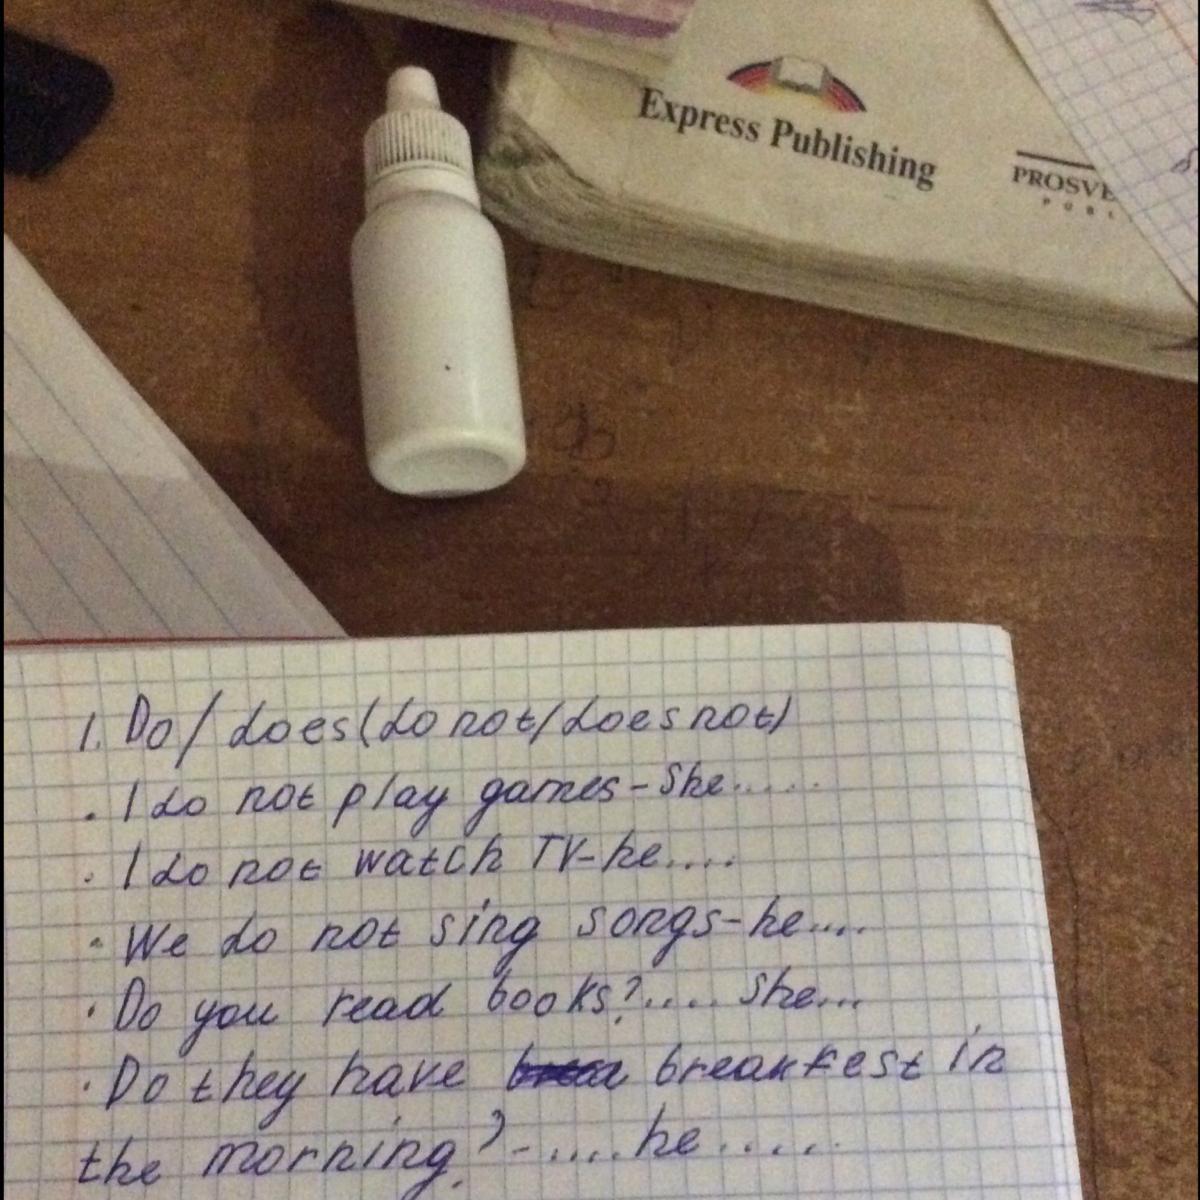 Express Publishing
PROSVE
PUBL
1. Do/does(do not/does not)
. I do not play games-She.....
. I do not watch TV-he....
. We do not sing songs-he....
. Do you read books?.... she...
. Do they have breakfest in
the morning?-....he.....